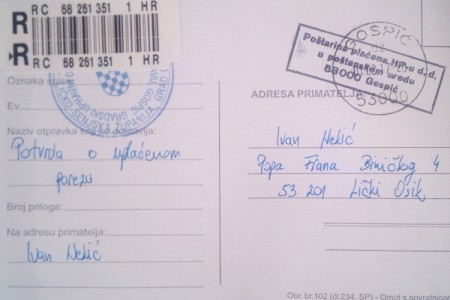 R RC 68 261 351 1 HR
R RC 68 261 351 1 HR
Oznaka spisa:
Ev.
Naziv otpravka koji se dostavlja:
Potvrda o uplaćenom
porezu
Broj priloga:
Na adresu primatelja:
Ivan Nekić
Poštarina plaćena HP-u d.d.
u poštanskom uredu
53000 Gospić
GOSPIĆ
53000
ADRESA PRIMATELJA
Ivan Nekić
Popa Frana Biničkog 4
53 201 Lički Osik
Obr. br.102 (čl.234. SP) - Omot s povratnicom